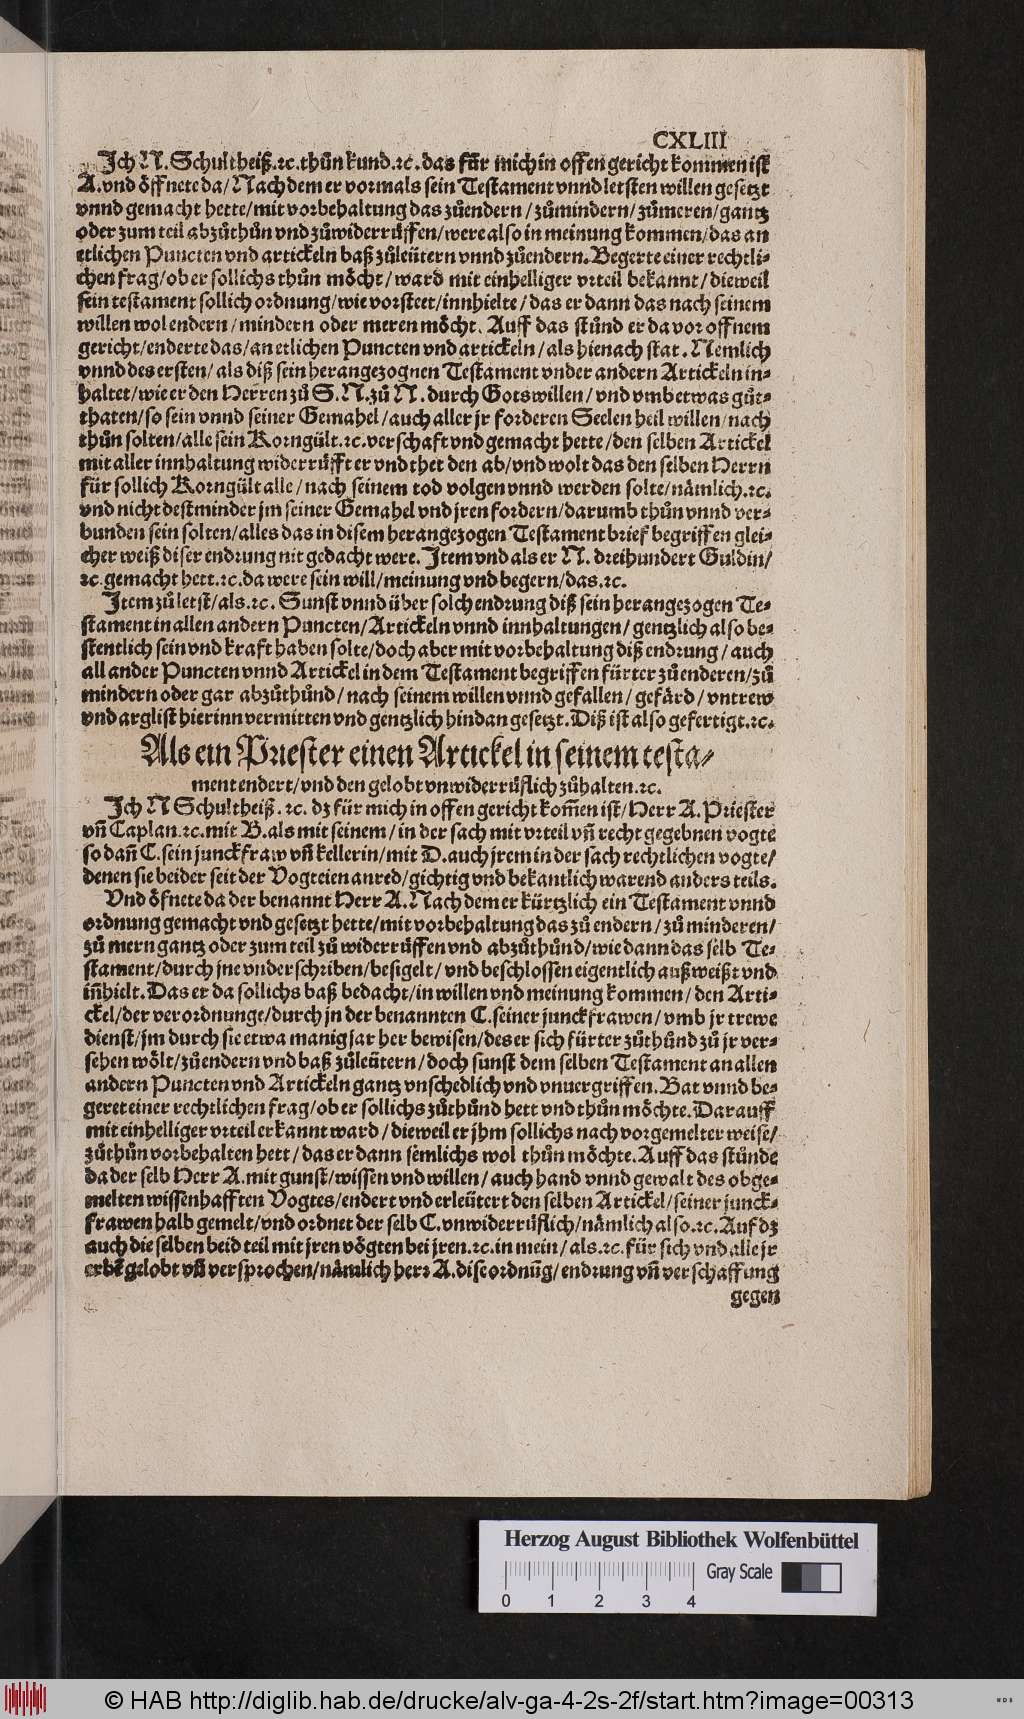 CXLIII
Ich N. Schultheiß.ꝛc.thůn kund.ꝛc. das für mich in offen gericht kommen ist
A. vnd öffnete da/Nach dem er vormals sein Testament vnnd letsten willen gesetzt
vnnd gemacht hette/mit vorbehaltung das zůendern/zůmindern/zůmeren/gantz
oder zum teil abzůthůn vnd zůwiderrůffen/were also in meinung kommen/das an
etlichen Puncten vnd artickeln baß zůleütern vnnd zůendern. Begerte einer rechtli-
chen frag/ob er sollichs thůn möcht/ward mit einhelliger vrteil bekannt/dieweil
sein testament sollich ordnung/wie vorsteet/innhielte/das er dann das nach seinem
willen wol endern/mindern oder meren möcht. Auff das stůnd er da vor offnem
gericht/enderte das/an etlichen Puncten vnd artickeln/als hienach stat. Nemlich
vnnd des ersten/als diß sein herangezognen Testament vnder andern Artickeln in-
haltet/wie er den Herren zů S. N. zů N. durch Gots willen/vnd vmb etwas gůt-
thaten/so sein vnnd seiner Gemahel/auch aller jr forderen Seelen heil willen/nach
thůn solten/alle sein Korngült.ꝛc.verschaft vnd gemacht hette/den selben Artickel
mit aller innhaltung widerrůfft er vnd thet den ab/vnd wolt das den selben Herrn
für sollich Korngült alle/nach seinem tod volgen vnnd werden solte/nämlich.ꝛc.
vnd nicht destminder jm seiner Gemahel vnd jren fordern/darumb thůn vnnd ver-
bunden sein solten/alles das in disem herangezogen Testament brief begriffen glei-
cher weiß diser endrung nit gedacht were. Item vnd als er N. dreihundert Guldin/
ꝛc.gemacht hett.ꝛc.da were sein will/meinung vnd begern/das.ꝛc.
Item zů letst/als.ꝛc. Sunst vnnd über solch endrung diß sein herangezogen Te-
stament in allen andern Puncten/Artickeln vnnd innhaltungen/gentzlich also be-
stentlich sein vnd kraft haben solte/doch aber mit vorbehaltung diß endrung/auch
all ander Puncten vnnd Artickel in dem Testament begriffen fürter zů enderen/zů
mindern oder gar abzůthůnd/nach seinem willen vnnd gefallen/gefärd/vntrew
vnd arglist hierinn vermitten vnd gentzlich hindan gesetzt. Diß ist also gefertigt.ꝛc.
Als ein Priester einen Artickel in seinem testa-
ment endert/vnd den gelobt vnwiderrůflich zůhalten.ꝛc.
Ich N Schultheiß.ꝛc. dz für mich in offen gericht kom̃en ist/Herr A. Priester
vñ Caplan.ꝛc.mit B.als mit seinem/in der sach mit vrteil vñ recht gegebnen vogte
so dañ C.sein junckfraw vñ kellerin/mit D.auch jrem in der sach rechtlichen vogte/
denen sie beider seit der Vogteien anred/gichtig vnd bekantlich warend anders teils.
Vnd öfnete da der benannt Herr A. Nach dem er kürtzlich ein Testament vnnd
ordnung gemacht vnd gesetzt hette/mit vorbehaltung das zů endern/zů minderen/
zů mern gantz oder zum teil zů widerrůffen vnd abzůthůnd/wie dann das selb Te-
stament/durch jne vnderschriben/besigelt/vnd beschlossen eigentlich außweißt vnd
iñhielt. Das er da sollichs baß bedacht/in willen vnd meinung kommen/den Arti-
ckel/der verordnunge/durch jn der benannten C.seiner junckfrawen/vmb jr trewe
dienst/jm durch sie etwa manig jar her bewisen/des er sich fürter zůthůnd zů jr ver-
sehen wölt/zůendern vnd baß zůleütern/doch sunst dem selben Testament an allen
andern Puncten vnd Artickeln gantz vnschedlich vnd vnuergriffen. Bat vnnd be-
geret einer rechtlichen frag/ob er sollichs zůthůnd hett vnd thůn möchte. Darauff
mit einhelliger vrteil erkannt ward/dieweil er jhm sollichs nach vorgemelter weise/
zůthůn vorbehalten hett/das er dann semlichs wol thůn möchte. Auff das stůnde
da der selb Herr A.mit gunst/wissen vnd willen/auch hand vnnd gewalt des obge-
melten wissenhafften Vogtes/endert vnd erleütert den selben Artickel/seiner junck-
frawen halb gemelt/vnd ordnet der selb C.vnwiderrůflich/nämlich also.ꝛc. Auf dz
auch die selben beid teil mit jren vögten bei jren.ꝛc.in mein/als.ꝛc.für sich vnd alle jr
erbẽ gelobt vñ versprochen/nämlich herr A.dise ordnũg/endrung vñ verschaffung
gegen
Herzog August Bibliothek Wolfenbüttel
Gray Scale
0 1 2 3 4
© HAB http://diglib.hab.de/drucke/alv-ga-4-2s-2f/start.htm?image=00313